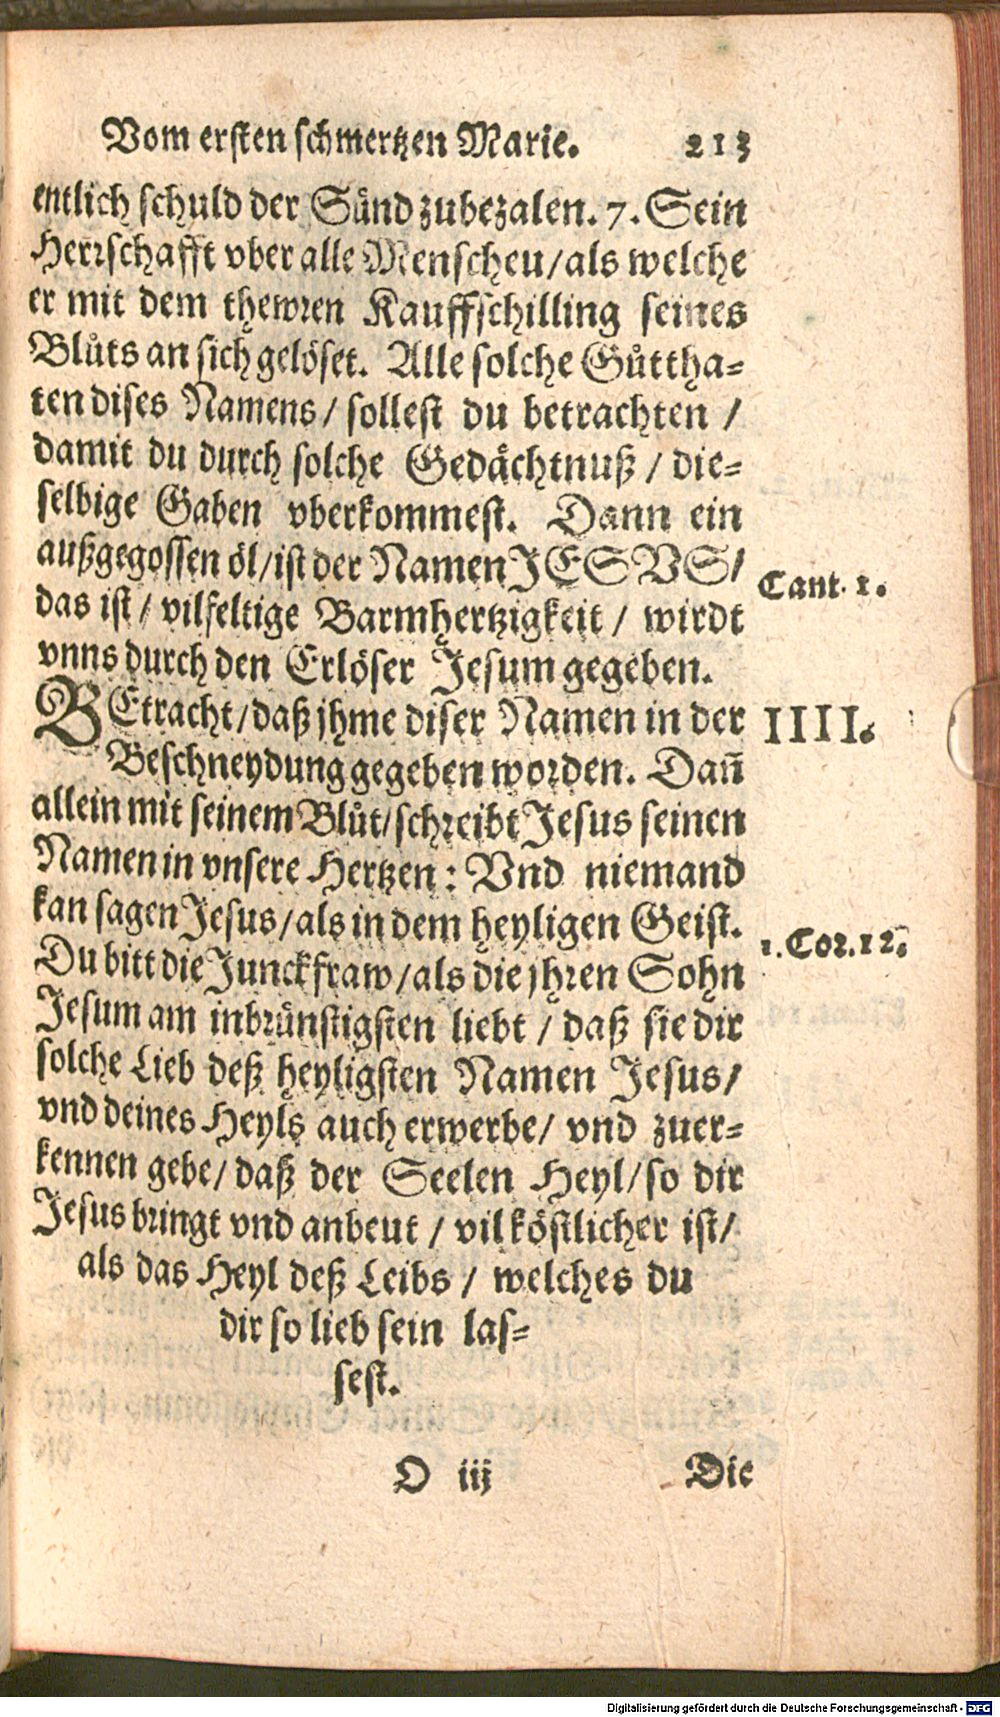 Vom ersten schmertzen Marie. 213
entlich schuld der Sünd zubezalen. 7. Sein
Herrschafft vber alle Menscheu/als welche
er mit dem thewren Kauffschilling seines
Blůts an sich gelöset. Alle solche Gůttha-
ten dises Namens/ sollest du betrachten /
damit du durch solche Gedächtnuß / die-
selbige Gaben vberkommest. Dann ein
außgegossen öl/ist der Namen JESVS/
Cant. 1.
das ist/ vilfeltige Barmhertzigkeit / wirdt
vnns durch den Erlöser Jesum gegeben.
BEtracht/daß jhme diser Namen in der
IIII.
Beschneydung gegeben worden. Dañ
allein mit seinem Blůt/schreibt Jesus seinen
Namen in vnsere Hertzen: Vnd niemand
kan sagen Jesus/als in dem heyligen Geist.
1. Cor. 12.
Du bitt die Junckfraw/als die jhren Sohn
Jesum am inbrünstigsten liebt / daß sie dir
solche Lieb deß heyligsten Namen Jesus/
vnd deines Heyls auch erwerbe/ vnd zuer-
kennen gebe/ daß der Seelen Heyl/so dir
Jesus bringt vnd anbeut / vil köstlicher ist/
als das Heyl deß Leibs / welches du
dir so lieb sein las-
sest.
O iij Die
Digitalisierung gefördert durch die Deutsche Forschungsgemeinschaft - DFG